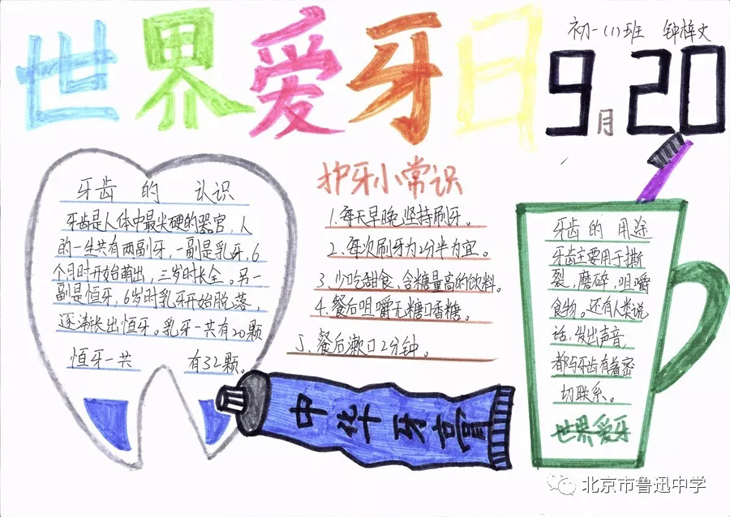 世界爱牙日
初一(1)班 钟梓火
9月20
牙齿的认识
牙齿是人体中最尖硬的器官,人
的一生共有两副牙,一副是乳牙,6
个月时开始萌出,三岁时长全。另一
副是恒牙,6岁时乳牙开始脱落,
逐渐长出恒牙。乳牙一共有20颗
恒牙一共 有32颗。
护牙小常识
1.每天早晚坚持刷牙。
2.每次刷牙为2分半为宜。
3.少吃甜食、含糖量高的饮料。
4.餐后咀嚼无糖口香糖。
5.餐后漱口2分钟。
中华牙膏
牙齿的用途
牙齿主要用于撕
裂,磨碎,咀嚼
食物。还有人类说
话,发出声音
都与牙齿有着密
切联系。
世界爱牙
北京市鲁迅中学